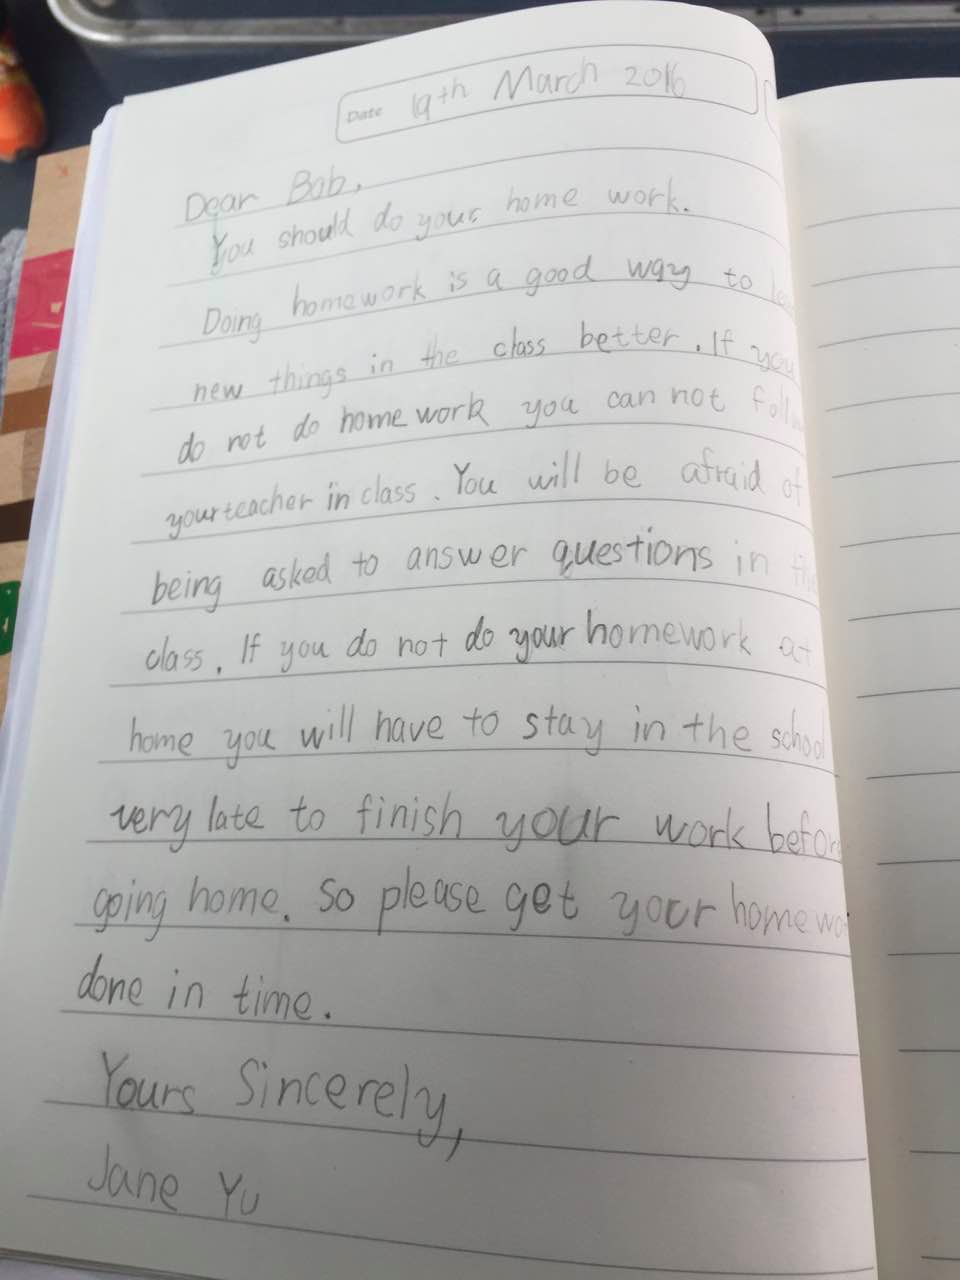 Date 19th March 2016
Dear Bob,
You should do your home work.
Doing homework is a good way to
new things in the class better. If you
do not do homework you can not
your teacher in class. You will be afraid of
being asked to answer questions in the
class. If you do not do your homework at
home you will have to stay in the school
very late to finish your work before
going home. So please get your
done in time.
Yours Sincerely,
Jane Yu